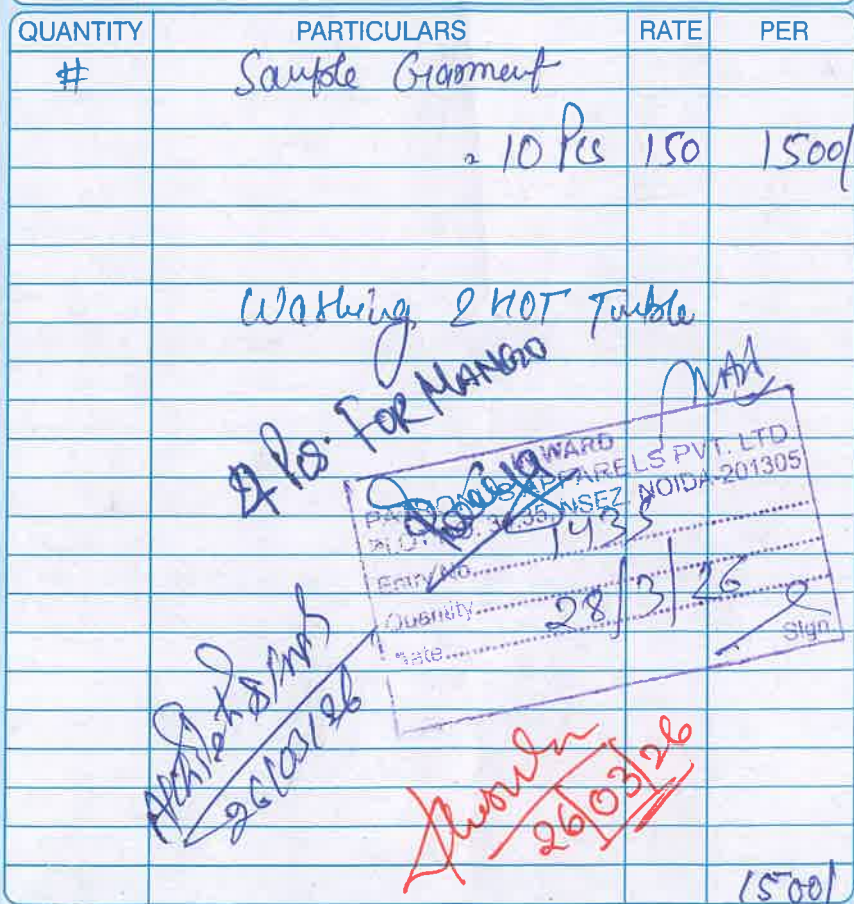 QUANTITY PARTICULARS RATE PER
# Sample Garment
10 Pcs 150 1500/
Washing & HOT Tumble
Pcs. FOR MANGO
INWARD
APPARELS PVT. LTD
PLOT NO. 34, 35, NSEZ, NOIDA-201305
Entry No. 1435
Quantity
Date 28/3/26
Sign.
26/03/26
26/03/26
1500/